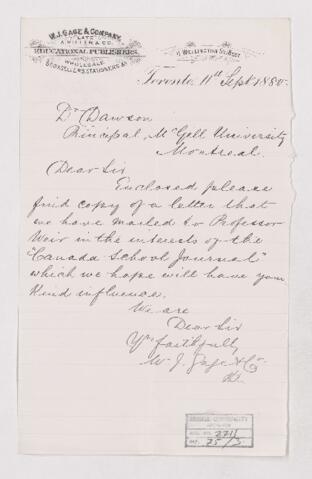 W.J. GAGE & COMPANY,
LATE
EDUCATIONAL PUBLISHERS,
WHOLESALE
BOOKSELLERS, STATIONERS &c
11 WELLINGTON ST. WEST
Toronto 11th Sept 1880
Dr Dawson
Principal, McGill University
Montreal.
Dear Sir
Enclosed please
find copy of a letter that
we have mailed to Professor
Weir in the interests of the
"Canada School Journal"
which we hope will have your
kind influence.
We are
Dear Sir
Yrs faithfully
W. J. Gage & Co
ARCHIVES
ACC. NO. 2211
REF. 25/3